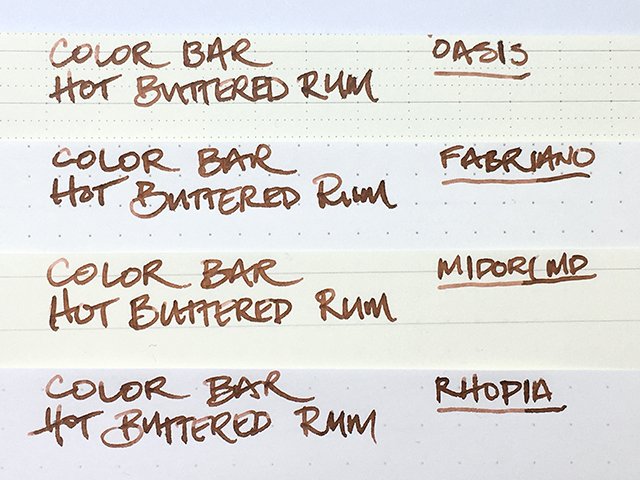 COLOR BAR OASIS
HOT BUTTERED RUM
COLOR BAR FABRIANO
HOT BUTTERED RUM
COLOR BAR MIDORI MD
HOT BUTTERED RUM
COLOR BAR RHOPIA
HOT BUTTERED RUM